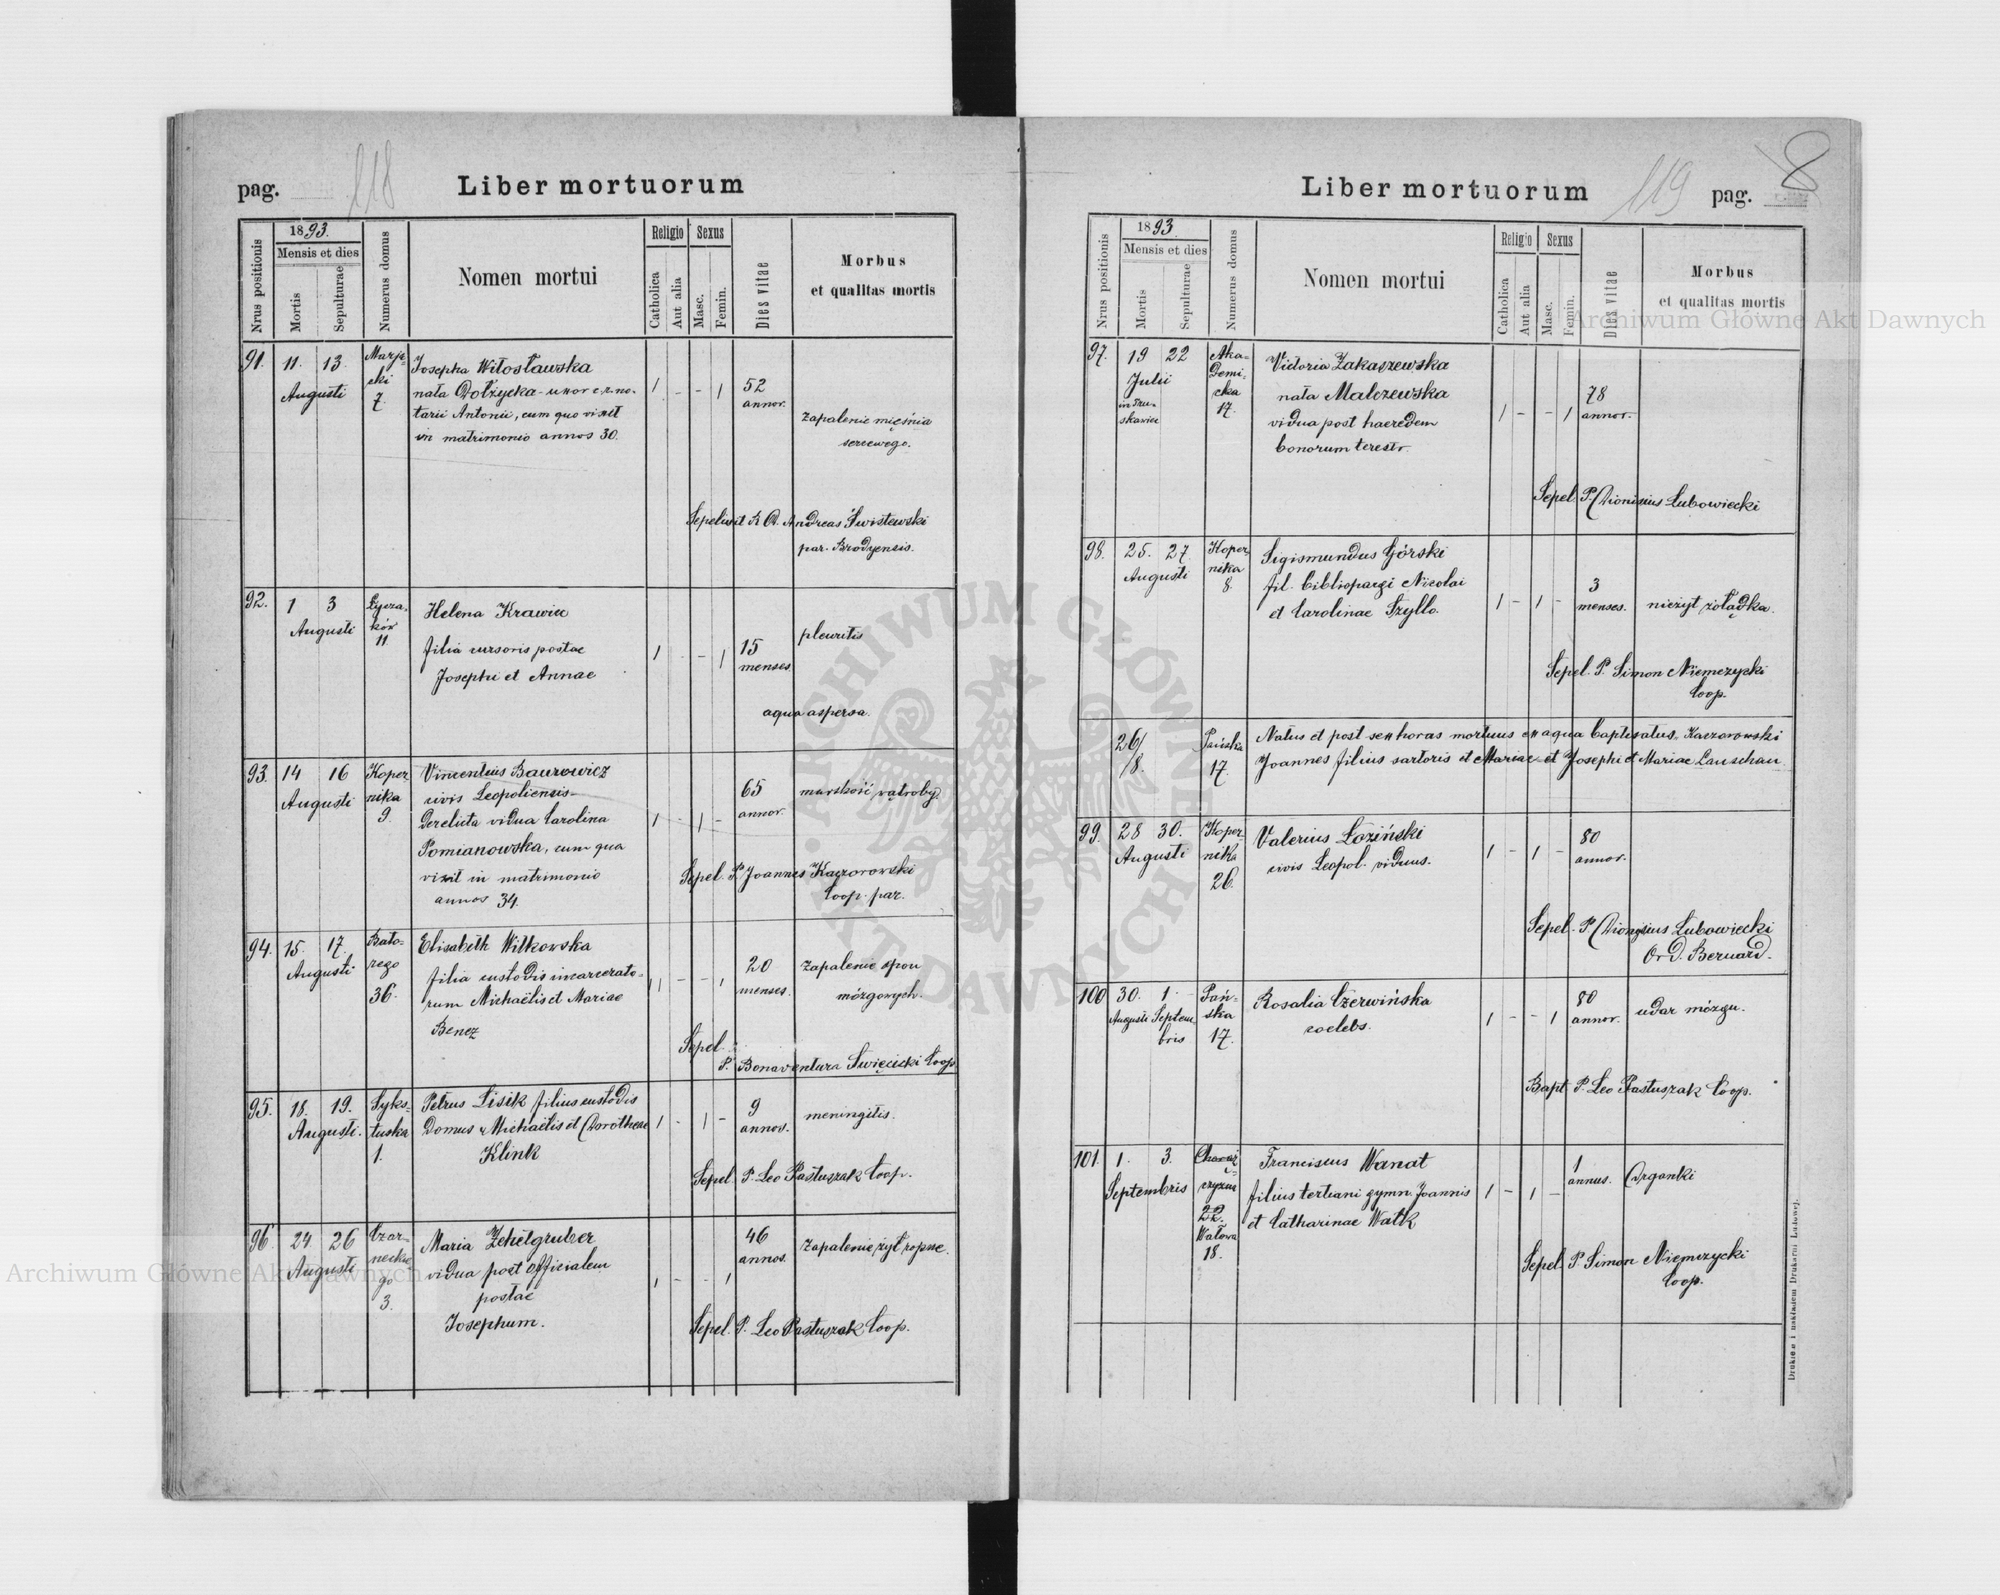 pag.
118
Liber mortuorum
1893.
Religio
Sexus
Mensis et dies
Nrus positionis
Mortis
Sepulturae
Numerus domus
Nomen mortui
Catholica
Aut alia
Masc.
Femin.
Dies vitae
Morbus
et qualitas mortis
91. 11. 13.
Augusti
7.
Josepha Witosławska
nata Dołżycka - uxor c.r. no-
tarii Antonii, cum quo vixit
in matrimonio annos 30.
1 - - 1
52
annor.
zapalenie mięśnia
sercowego.
Andreas Swistewski
par. Brodyensis.
92. 1 3
Augusti
Łycza-
ków
11.
Helena Krawiec
filia cursoris postae
Josephi et Annae
1 - - 1
15
menses
pleuritis
aqua aspersa.
93. 14 16
Augusti
Koper
nika
9.
Vincentius Baurowicz
civis Leopoliensis
derelicta vidua Carolina
Pomianowska, cum qua
vixit in matrimonio
annos 34.
1 - 1 -
65
annor.
marskość wątroby
Sepel. P. Joannes Kaczorowski
Coop. par.
94. 15. 17.
Augusti
Bato-
rego
36.
Elisabeth Witkowska
filia custodis incarcerato-
rum Michaëlis et Mariae
Benez
1 - - 1
20
menses.
zapalenie opon
mózgowych.
Sepel.
P. Bonaventura Swięcicki Coop.
95. 18. 19.
Augusti.
Syks-
tuska
1.
Petrus Lisik filius custodis
domus Michaëlis et Dorotheae
Klink
1 - 1 -
9
annos.
meningitis.
Sepel P. Leo Pastuszak Coop.
96. 24 26
Augusti
Czar-
neckie
go
3.
Maria Zehetgruber
vidua post officialem
postae
Josephum.
1 - - 1
46
annos.
zapalenie żył ropne.
Sepel. P. Leo Pastuszak Coop.
Liber mortuorum
119
pag.
8
1893.
Religio
Sexus
Mensis et dies
Nrus positionis
Mortis
Sepulturae
Numerus domus
Nomen mortui
Catholica
Aut alia
Masc.
Femin.
Dies vitae
Morbus
et qualitas mortis
97. 19 22
Julii
in Tru-
skawiec
Aka-
demi-
cka
17.
Victoria Zakaszewska
nata Malczewska
vidua post haeredem
bonorum terestr.
1 - - 1
78
annor.
Sepel. P. Dionisius Lubowiecki
98. 25. 27.
Augusti
Koper-
nika
8.
Sigismundus Górski
fil. bibliopargi Nicolai
et Carolinae Szyllo.
1 - 1 -
3
menses.
nieżyt żołądka.
Sepel. P. Simon Niemczycki
Coop.
26/
/8.
Pańska
17.
Natus et post sex horas mortuus ex aqua baptisatus. Kaczorowski
Joannes filius sartoris et Mariae et Josephi et Mariae Lauschau
99. 28 30.
Augusti
Koper-
nika
26.
Valerius Łoziński
civis Leopol. viduus.
1 - 1 -
80
annor.
Sepel. P. Dionysius Lubowiecki
Ord. Bernard.
100 30. 1.
Augusti Septem-
bris
Pań-
ska
17.
Rosalia Czerwińska
coelebs.
1 - - 1
80
annor.
udar mózgu.
Bapt P. Leo Pastuszak Coop.
101. 1. 3.
Septembris
22.
Wałowa
18.
Franciscus Wanat
filius tertiani gymn. Joannis
et Catharinae Watk
1 - 1 -
1
annus.
Drganki
Sepel. P. Simon Niemczycki
Coop.
Drukiem i nakładem Drukarni Ludowej.
Archiwum Główne Akt Dawnych
Archiwum Główne Akt Dawnych
ARCHIWUM GŁÓWNE
AKT DAWNYCH